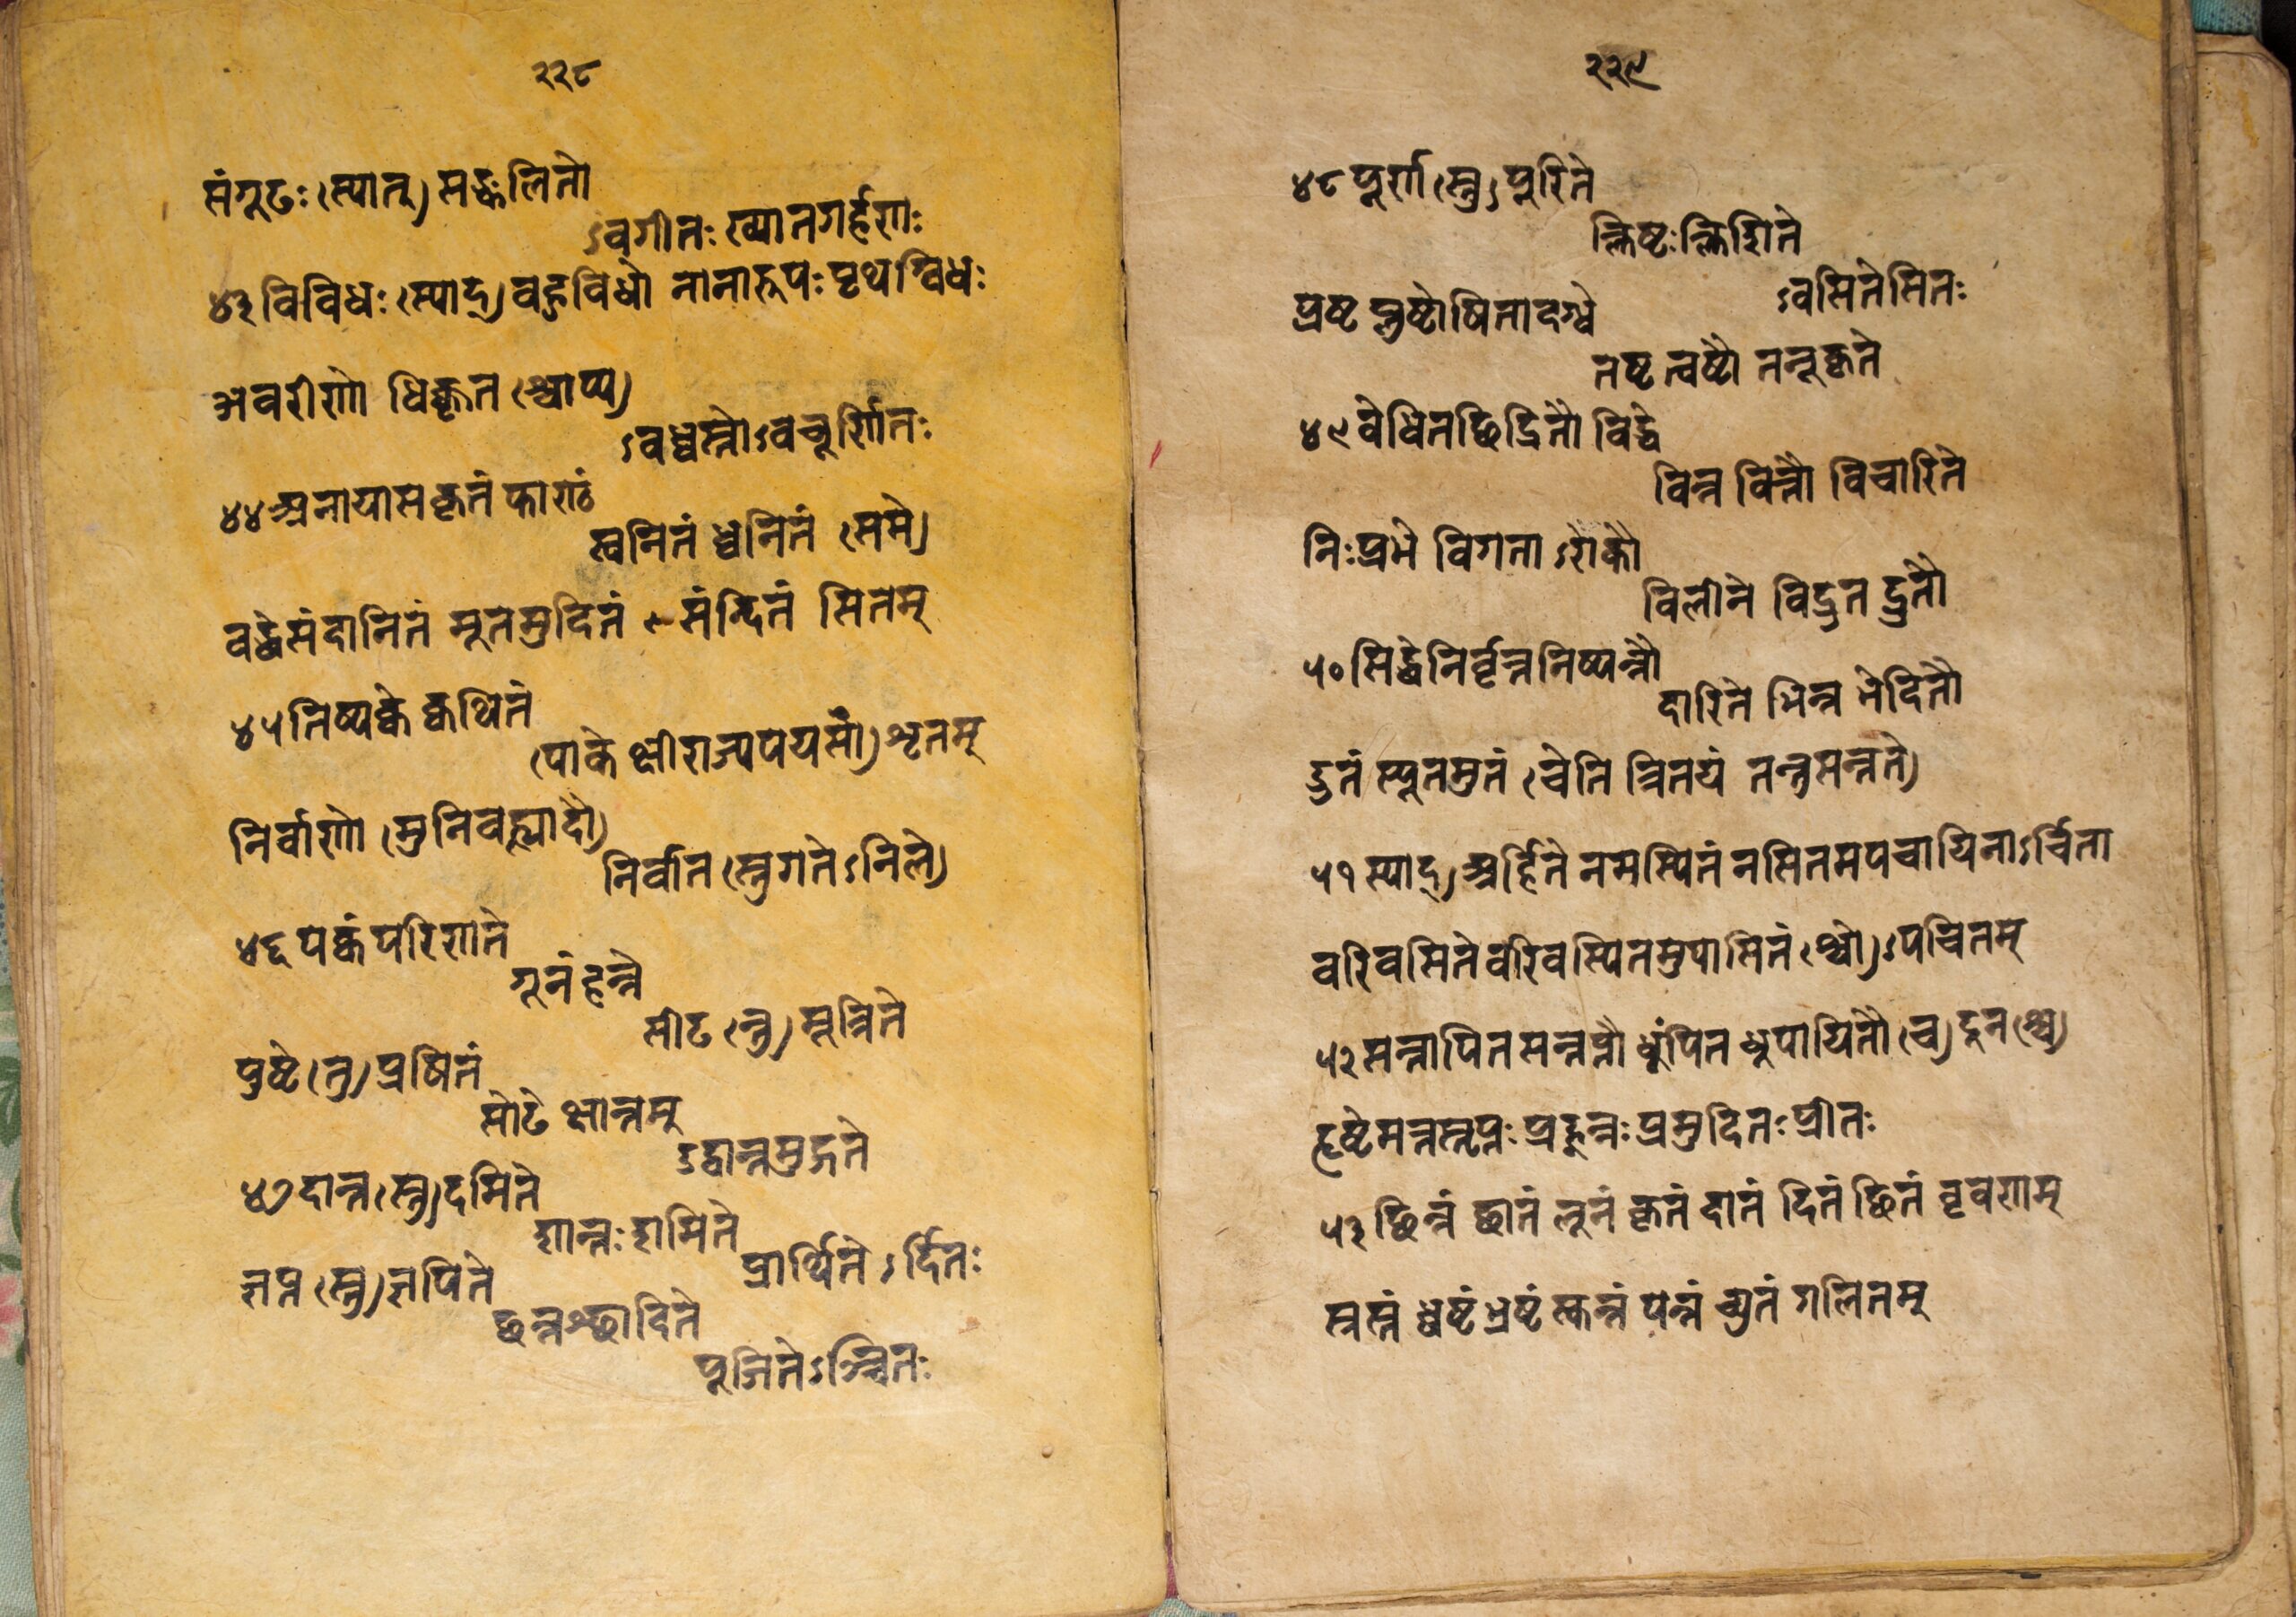 २२८
संगूढः (स्यात्) सङ्कलितो
ऽवगीतः ख्यातगर्हणः
४३ विविधः (स्याद्) वहुविधो नानारूपः पृथग्विधः
अवरीणो धिक्कृत (श्चाप्य)
ऽवध्वस्तोऽवचूर्णितः
४४ अनायासकृतं फाण्टं
स्वनितं ध्वनितं (समे)
वद्धे संदानितं मूतमुदितं संन्दितं सितम्
४५ निष्पक्वे क्वथितं
(पाके क्षीराज्यपयसां) शृतम्
निर्वाणो (मुनिवह्न्यादौ)
निर्वात (स्तुगतेऽनिले)
४६ पक्वं परिणते
गूनं हन्ने
मीढ (न्तु) मूत्रिते
पुष्टे (तु) पुषितं
सोढे क्षान्तम्
उद्वान्तमुद्गते
४७ दान्त (स्तु) दमिते
शान्तः शमिते
प्रार्थिते ऽर्दितः
ज्ञप्त (स्तु) ज्ञपिते
छन्नश्छादिते
पूजितेऽञ्चितः
२२९
४८ पूर्ण (स्तु) पूरिते
क्लिष्टः क्लिशिते
ऽवसिते सितः
प्रुष्ट प्लुष्टोषिता दग्धे
तष्ट त्वष्टौ तनूकृते
४९ वेधितछिद्रितौ विद्धे
विन्न वित्तौ विचारिते
निःप्रभे विगता ऽरोकौ
विलीने विद्रुत द्रुतौ
५० सिद्धे निर्वृत्त निष्पन्नौ
दारिते भिन्न भेदितौ
उतं स्यूतमुतं (चेति त्रितयं तन्तुसन्तते)
५१ स्याद्) अर्हिते नमस्यितं नसितमपचायिताऽर्चिता
वरिवसिते वरिवस्यितमुपासितं (श्चो)ऽपचितम्
५२ सन्तापित सन्तप्तौ धूपित धूपायितौ (च) दून (श्च)
हृष्टे मत्तस्तृप्तः प्रह्लन्नः प्रमुदितः प्रीतः
५३ छिन्नं छातं लूनं कृतं दातं दितं छितं वृक्णम्
स्रस्तं ध्वष्टं भ्रष्टं स्कन्नं पन्नं च्युतं गलितम्